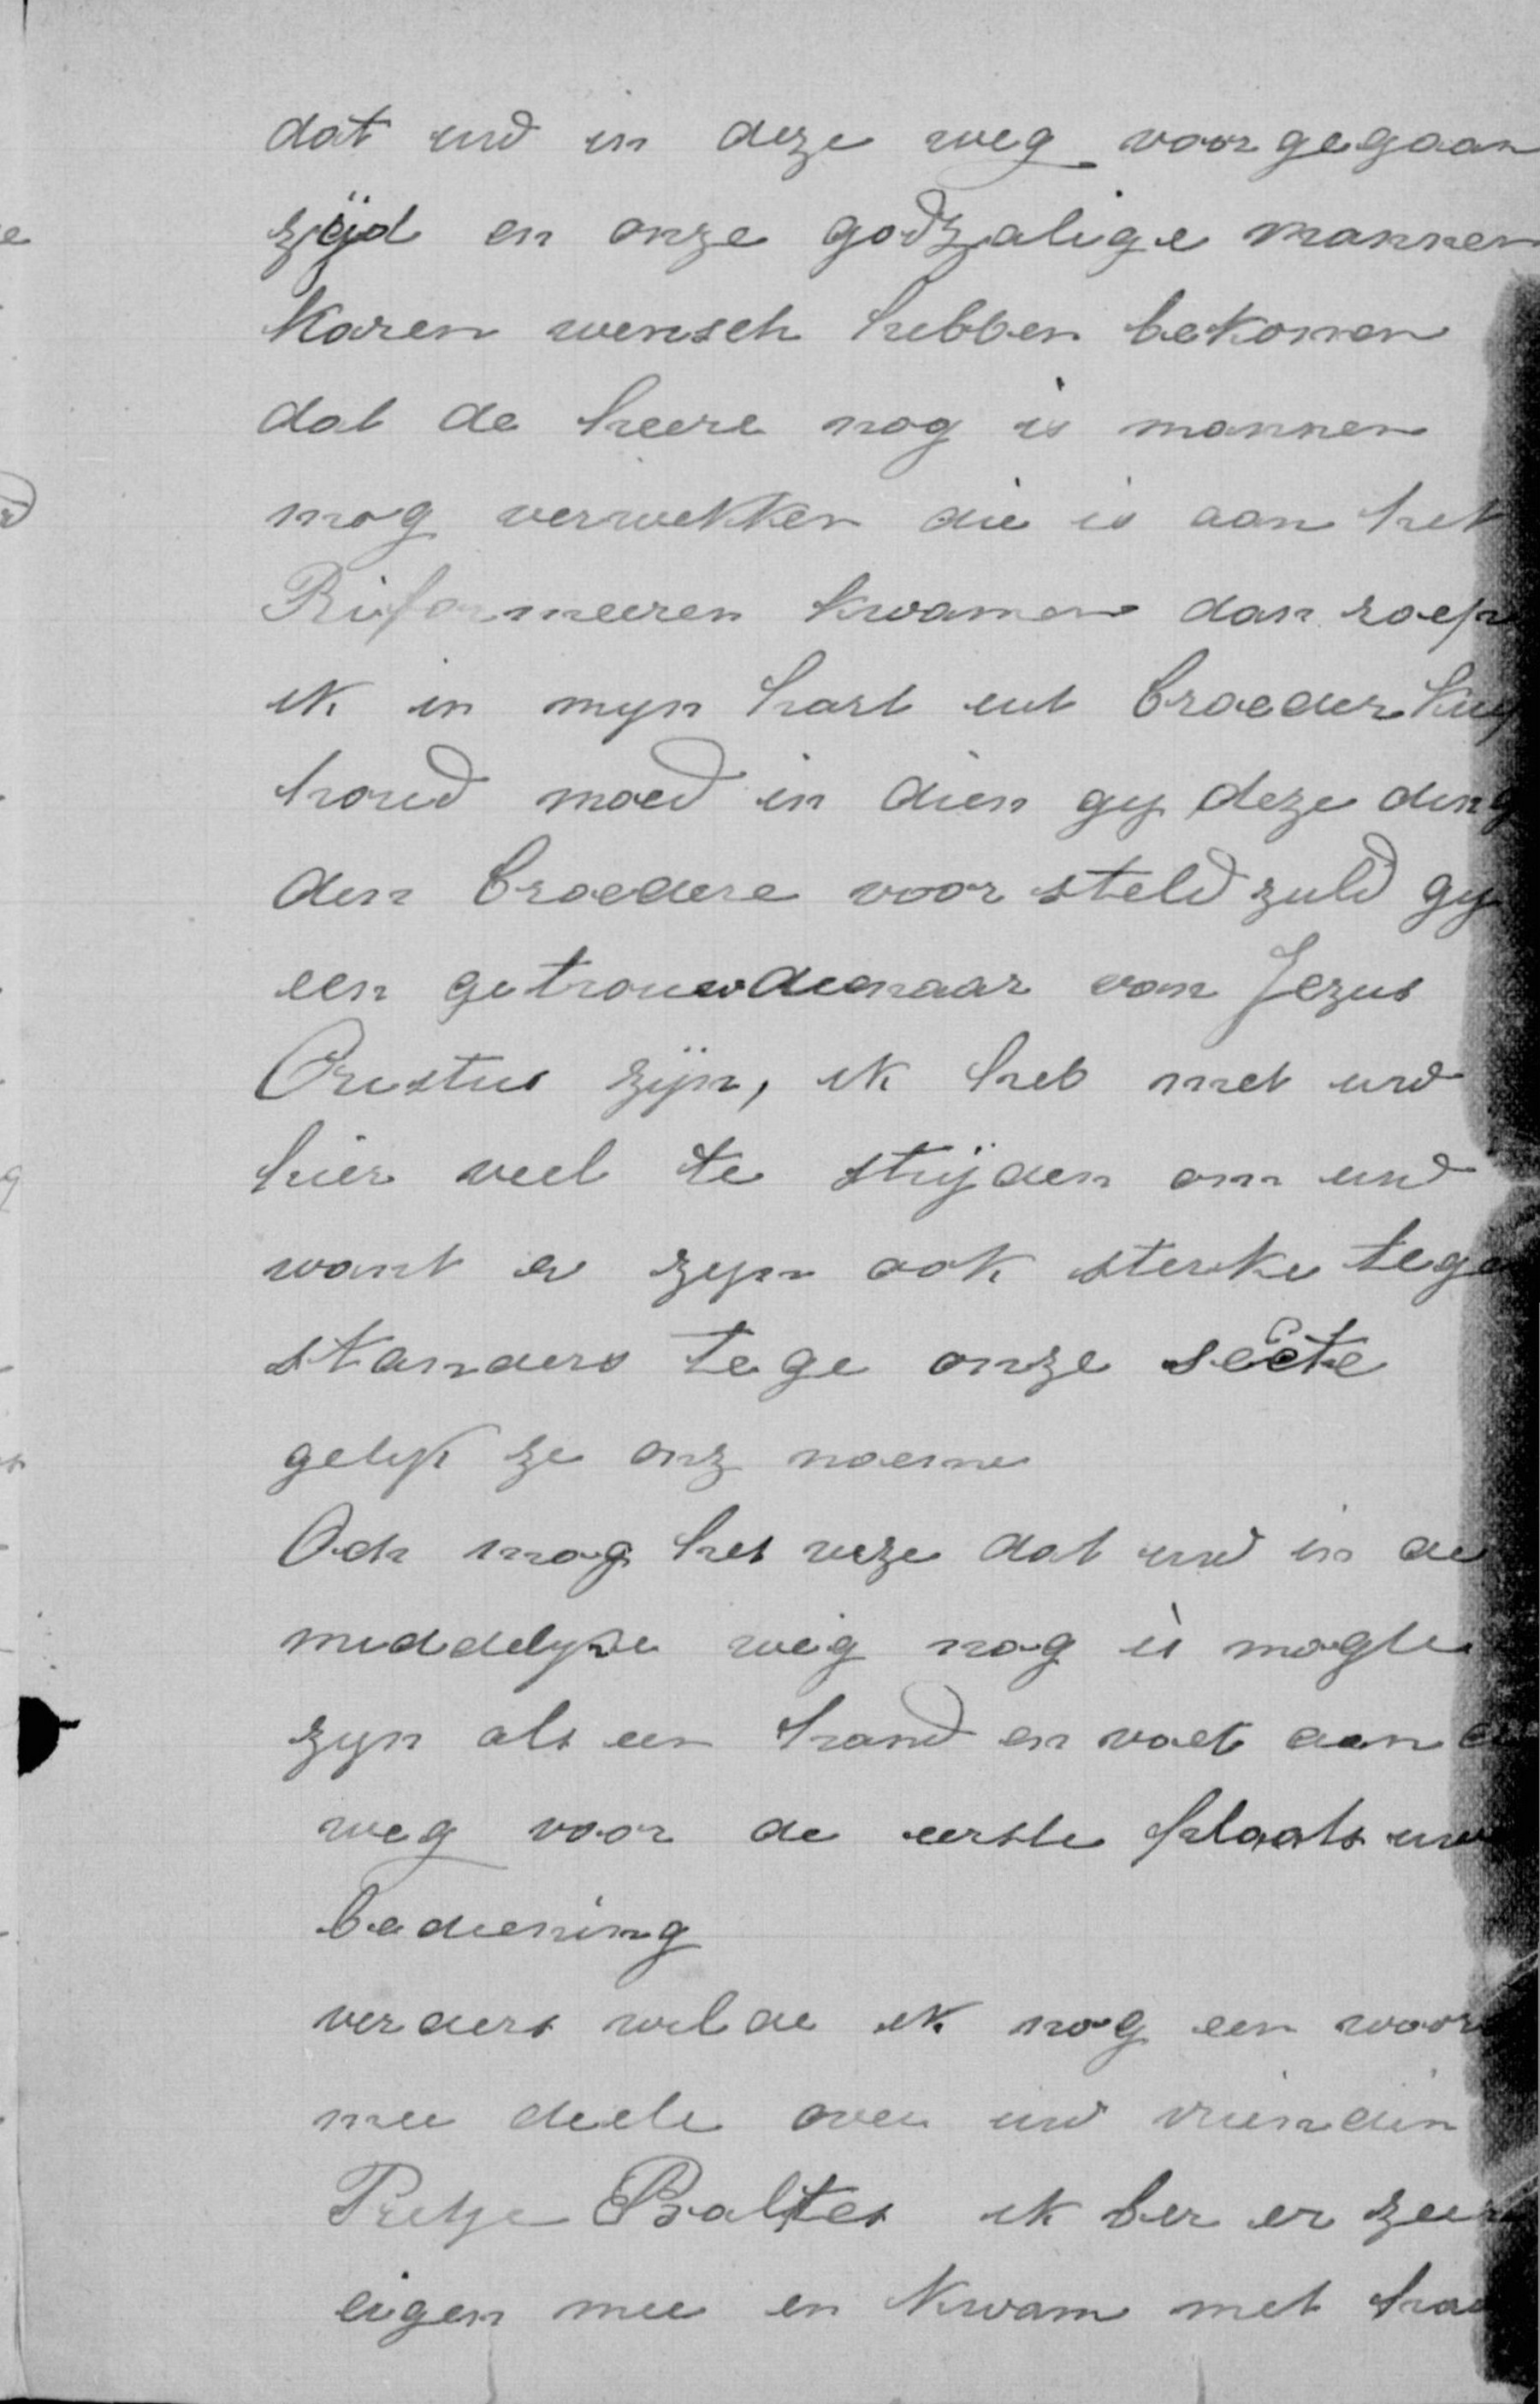 dat uw in deze weg voorgegaan
zijd en onze godzalige mannen
haren wensch hebben bekomen
dat de heere nog is mannen
mog verwekken die is aan het
Riformeeren kwamen dan roep
ik in myn hart uit broeder
houd moed in dien gy deze ding
den broedere voor steld zuld gy
een getrouw dienaar van Jezus
Cristus zijn, ik heb met uw
hier veel te strijden om uw
want er zyn ook sterke tege
standers tege onze secte
gelyk ze onz noeme
Och mog het weze dat uw in de
middelyke weg nog is mogte
zyn als een hand en voet aan
weg voor de eerste plaats uw
bediening
verders wilde ik nog een woor
mee deele over uw vriendin
Pietje Baltes ik ben er zeer
eigen mee en kwam met haa